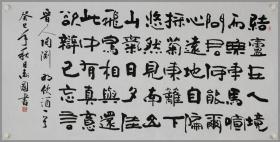 結廬在人境
而無車馬喧
問君何能爾
心遠地自偏
採菊東籬下
悠然見南山
山氣日夕佳
飛鳥相與還
此中有真意
欲辯已忘言
晉人陶淵明飲酒一首
癸巳年秋月國書